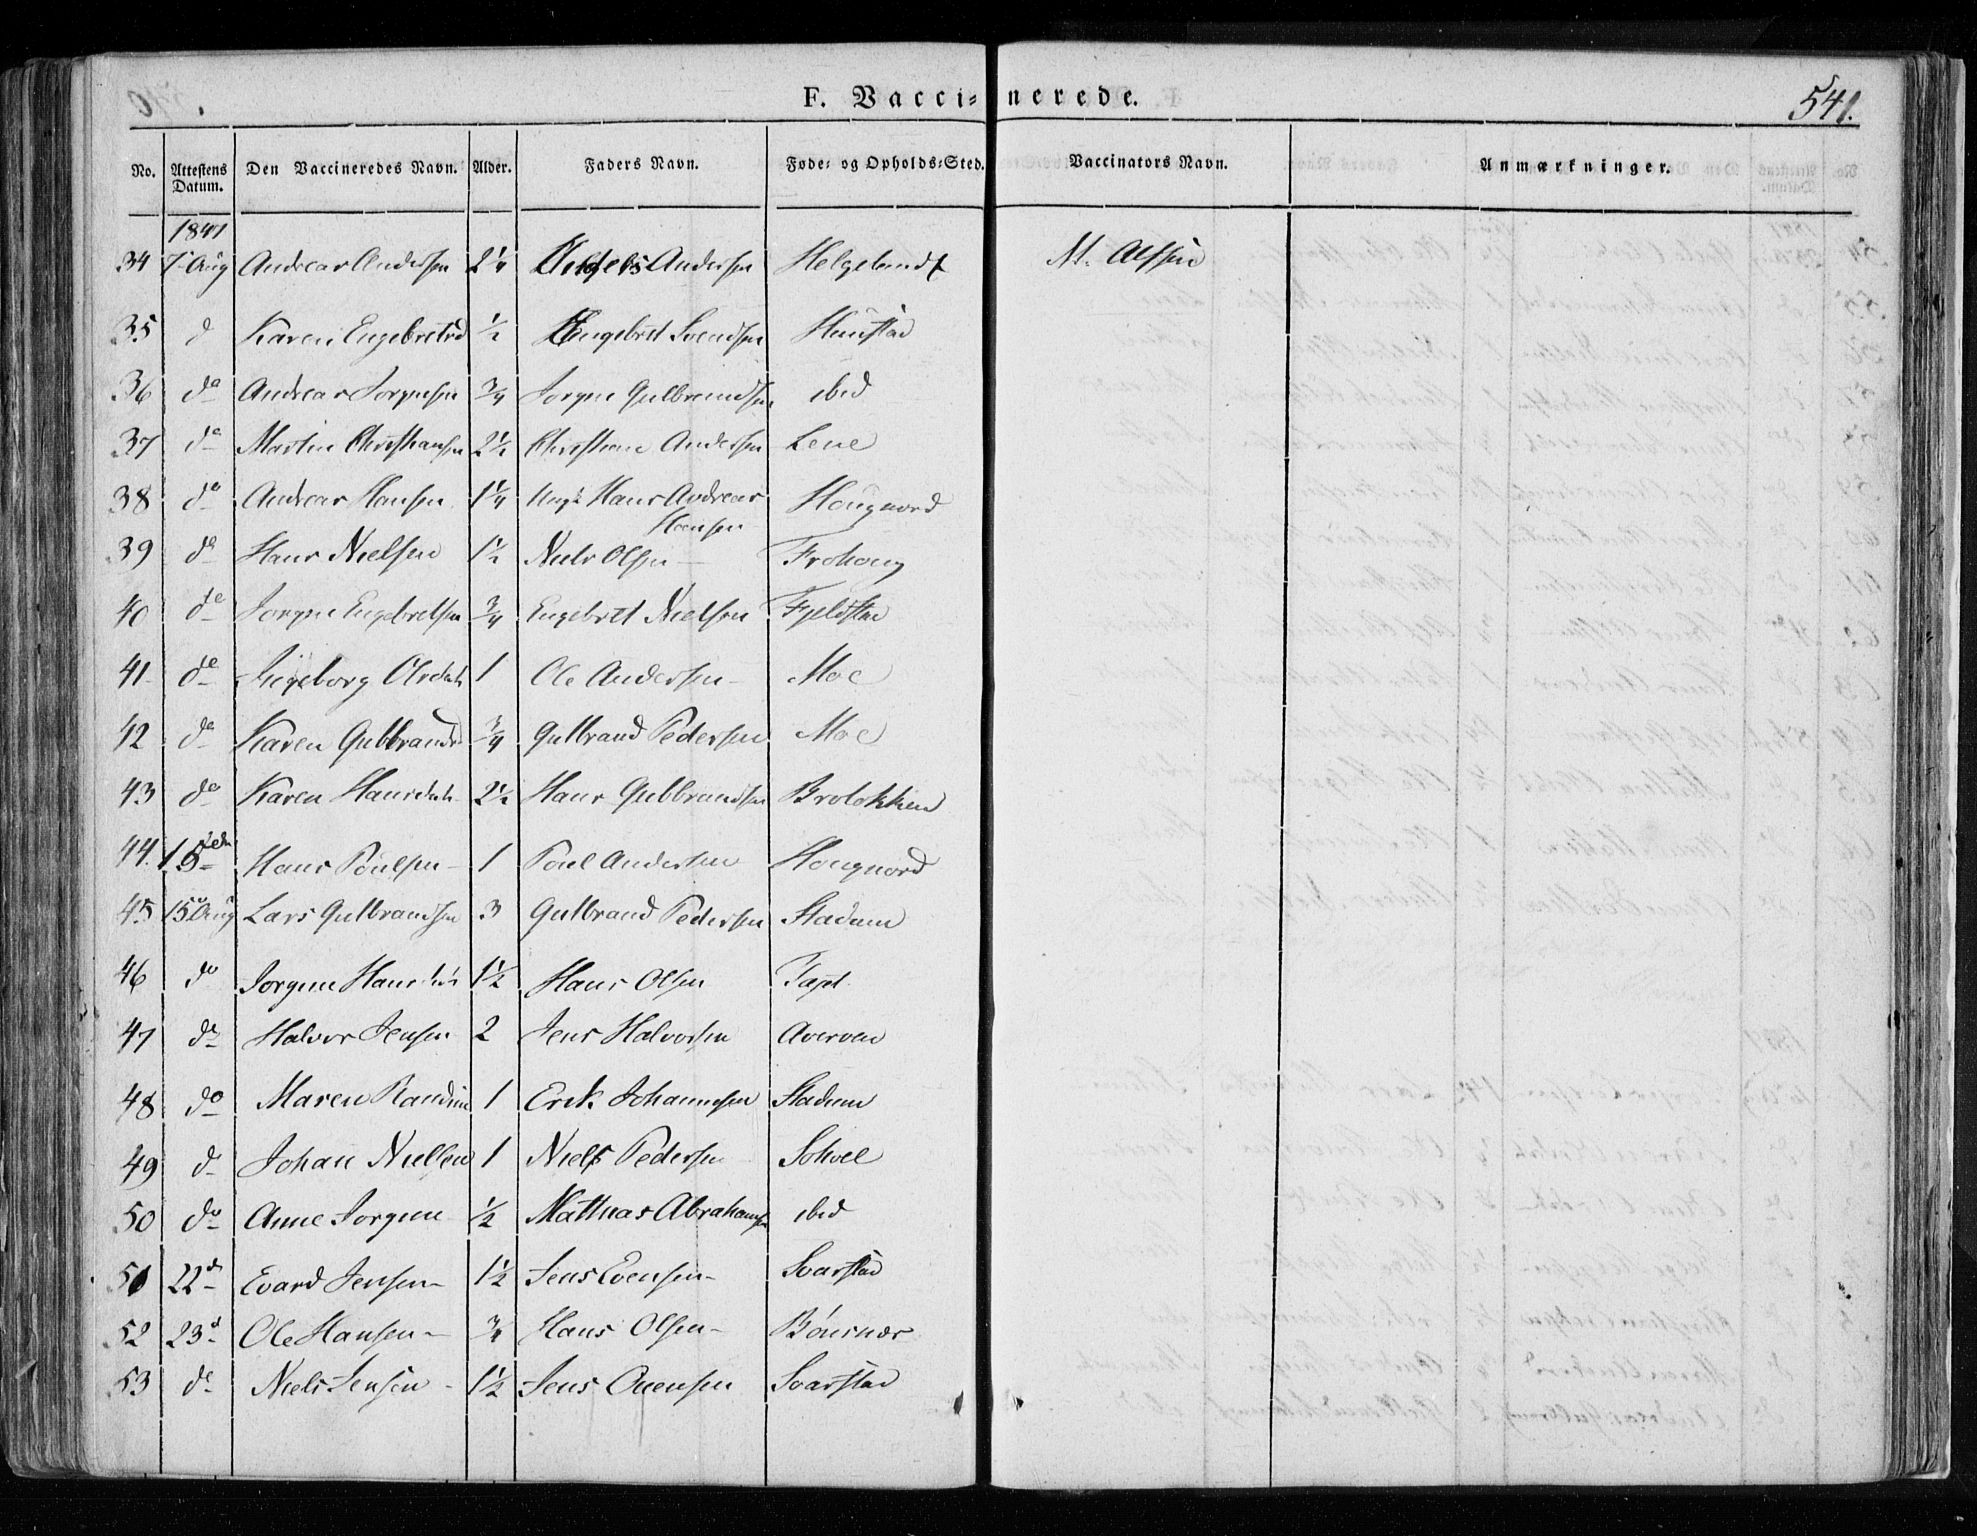 F. Vaccinerede.
541.
No. Attestens Datum. Den Vaccineredes Navn. Alder. Faders Navn. Føde- og Opholds-Sted. Vaccinators Navn. Anmærkninger.
1841
34 7 Aug Andreas Andersen 2¼ Andersen Helgeland M.
35 d Karen Engebretsd ½ Engebret Svendsen
36 do Andreas Jorgensen ¾ Jorgen Gulbrandsen ibid
37 do Martin Christiansen 2½ Christian Andersen Lene
38 do Andreas Hansen 1¼ Hans Andreas
Hansen Hougnord
39 do Hans Nielsen 1½ Niels Olsen Frohoug
40 do Jorgen Engebretsen ¾ Engebret Nielsen Fjeldstad
41 do Ingeborg Olsdatr 1 Ole Andersen Moe
42 do Karen Gulbrands ¾ Gulbrand Pedersen Moe
43 do Karen Hansdatr 2½ Hans Gulbrandsen Brolokken
44. 15 Hans Poulsen 1 Poul Andersen Hougnord
45 15 Aug Lars Gulbrandsen 3 Gulbrand Pedersen Stadum
46 do Jorgine 1½ Hans Olsen
47 do Halvor Jensen 2 Jens Halvorsen Averøen
48 do Maren Randine 1 Erik Johannesen Stadum
49 d Johan Nielsen 1 Niels Pedersen Sohoel
50 do Anne Jorgine ½ Mathias Abrahamsen ibid
51 22d Evard Jensen 1½ Jens Evensen Svarstad
52 23d Ole Hansen ¾ Hans Olsen Bonsnæs
53 do Niels Jensen 1½ Jens Svarstad